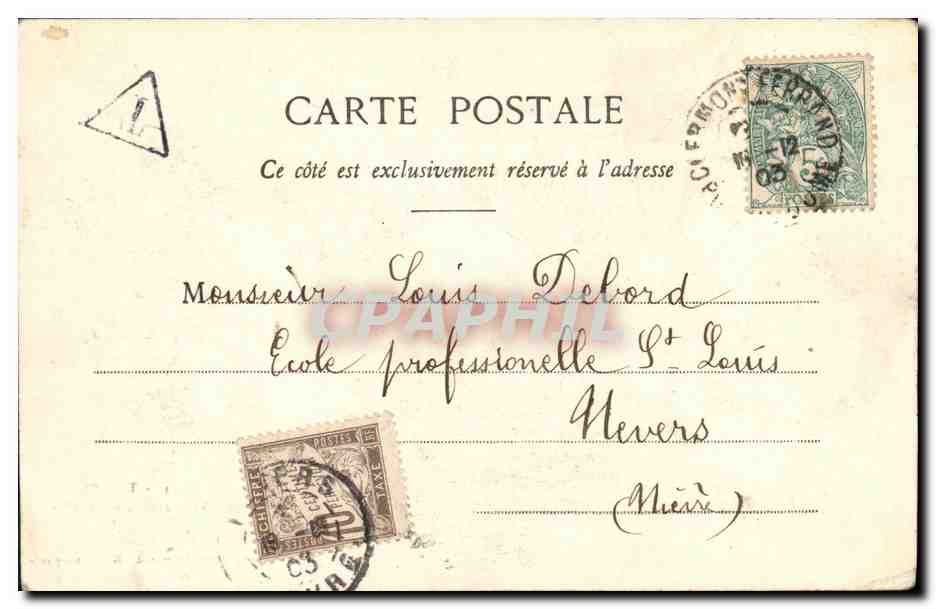 T
CARTE POSTALE
Ce côté est exclusivement réservé à l'adresse
CLERMONT-FERRAND
12
03
Monsieur Louis Debord
CPAPHIL
Ecole professionelle St Louis
Nevers
(Nièvre)
POSTES
CHIFFRE
TAXE
10
03